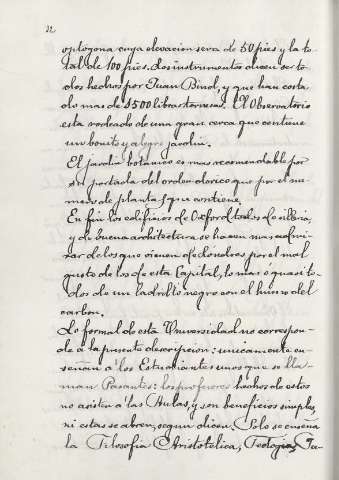 22
optogona cuya elevacion sera de 50 pies y la to-
tal de 100 pies. Los instrumentos dicen ser to-
dos hechos por Juan Bird, y que han costa-
do mas de 1500 libras El Observatorio
esta rodeado de una gran cerca que contiene
un bonito y alegre jardin.
El jardin botanico es mas recomendable por
su portada del orden dorico que por el nu-
mero de plantas que contiene.
En fin los edificios de Oxford todos de silleria,
y de buena architectura se hacen mas admi-
rar de los que vienen de Londres por el mal
gusto de los de esta Capital, lo mas ó quasi to-
dos de un ladrillo negro con el humo del
carbon.
Lo formal de esta Universidad no correspon-
de á la presente descripcion: unicamente en-
señan á los Estudiantes unos que se lla-
man Pasantes: los profesores hechos de estos
no asisten á las Aulas, y son beneficios simples,
ni estas se abren, segun dicen. Solo se enseña
la Filosofia Aristotelica, Teologia, Ju-